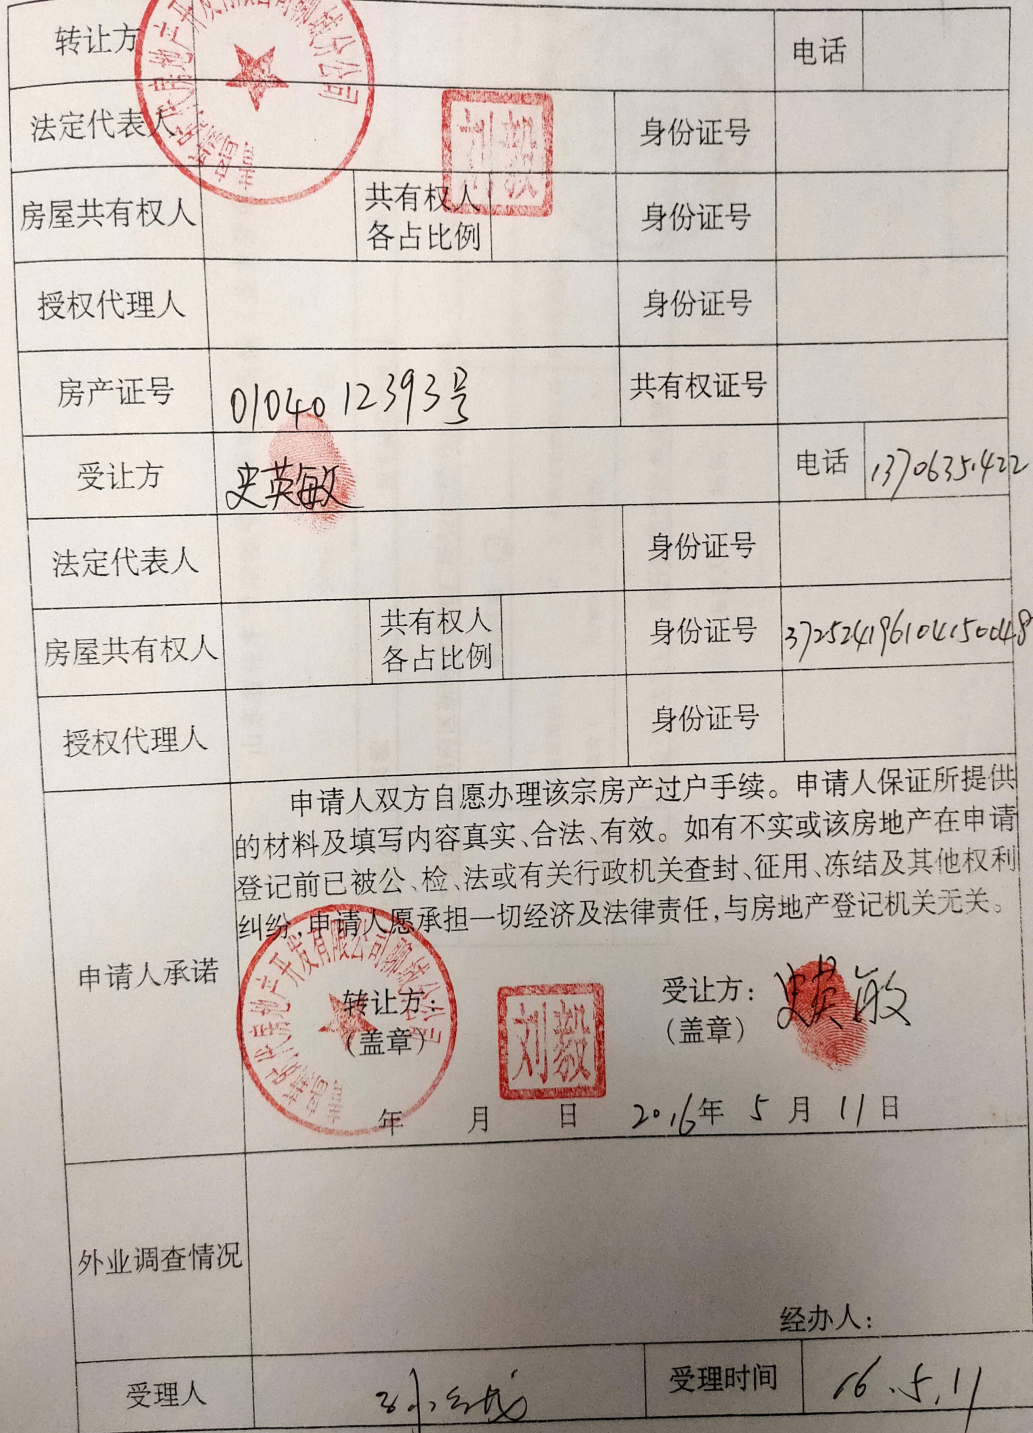 转让方 电话
法定代表人 刘毅 身份证号
房屋共有权人 共有权人各占比例 身份证号
授权代理人 身份证号
房产证号 0104012393号 共有权证号
受让方 史英敏 电话 13706351422
法定代表人 身份证号
房屋共有权人 共有权人各占比例 身份证号 372524196104150048
授权代理人 身份证号
申请人双方自愿办理该宗房产过户手续。申请人保证所提供
的材料及填写内容真实、合法、有效。如有不实或该房地产在申请
登记前已被公、检、法或有关行政机关查封、征用、冻结及其他权利
纠纷,申请人愿承担一切经济及法律责任,与房地产登记机关无关。
申请人承诺
转让方: 刘毅 受让方: 史英敏
(盖章) (盖章)
年 月 日 2016年 5月 11日
房地产开发有限公司聊城分公司
外业调查情况
经办人:
受理人 受理时间 16.5.11